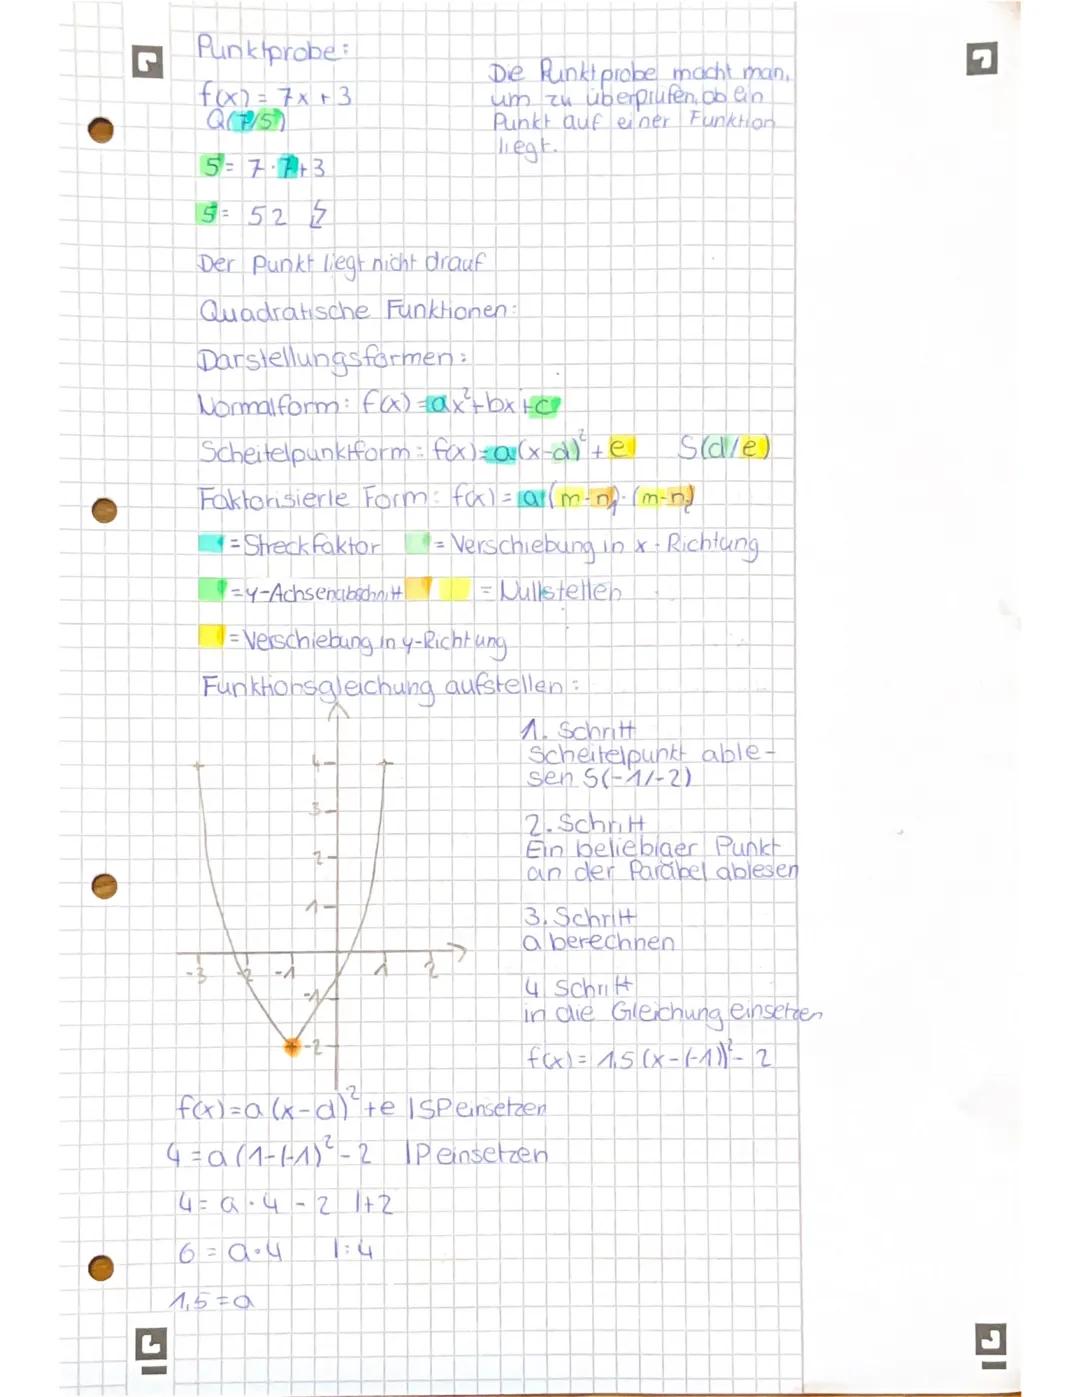 Punktprobe:
f(x) = 7x + 3
Q(7/5)
Die Punktprobe macht man,
um zu überprüfen, ob ein
Punkt auf einer Funktion
liegt.
5 = 7 · 7 + 3
5 = 52 ↯
Der Punkt liegt nicht drauf
Quadratische Funktionen:
Darstellungsformen:
Normalform: f(x) = ax² + bx + c
Scheitelpunktform: f(x) = a(x-d)² + e S(d/e)
Faktorisierte Form: f(x) = a(m-n₁)·(m-n₂)
= Streckfaktor = Verschiebung in x-Richtung
= y-Achsenabschnitt = Nullstellen
= Verschiebung in y-Richtung
Funktionsgleichung aufstellen:
1. Schritt
Scheitelpunkt able-
sen S(-1/-2)
2. Schritt
Ein beliebiger Punkt
an der Parabel ablesen
3. Schritt
a berechnen
4 Schritt
in die Gleichung einsetzen
f(x) = 1,5 (x-(-1))² - 2
4
3
2
1
-3 -2 -1 1 2
-1
-2
f(x) = a (x-d)² + e | SP einsetzen
4 = a (1-(-1)² - 2 | P einsetzen
4 = a · 4 - 2 | +2
6 = a · 4 | : 4
1,5 = a